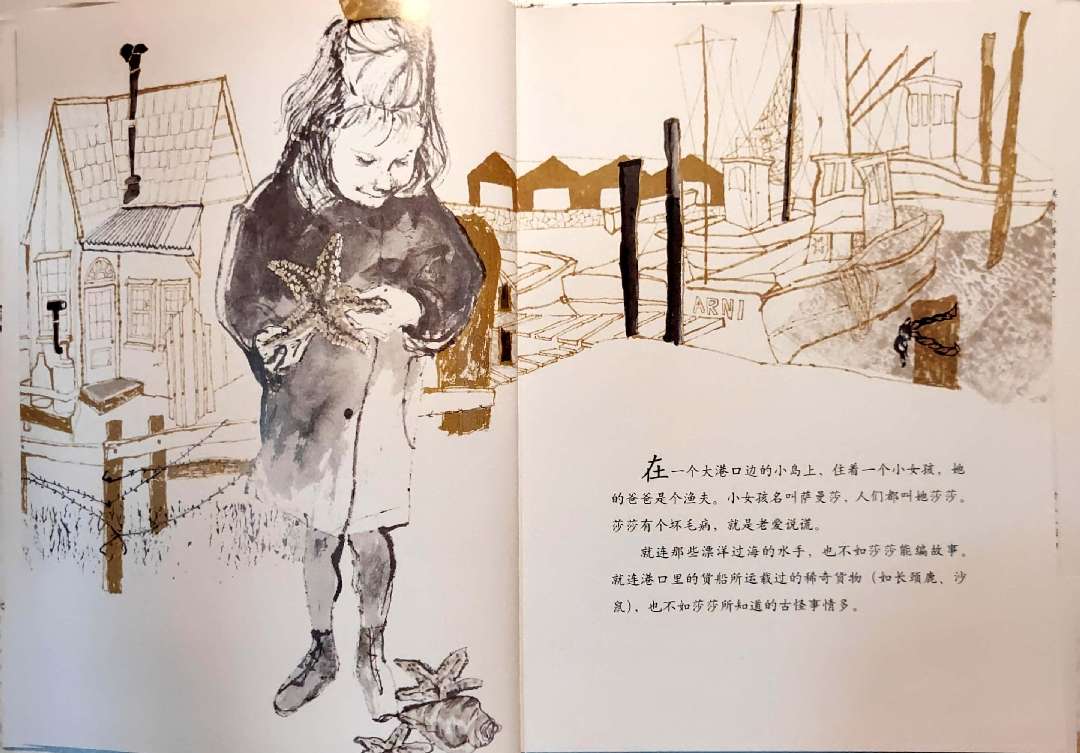 ARNI
在一个大港口边的小岛上，住着一个小女孩，她
的爸爸是个渔夫。小女孩名叫萨曼莎，人们都叫她莎莎。
莎莎有个坏毛病，就是老爱说谎。
就连那些漂洋过海的水手，也不如莎莎能编故事。
就连港口里的货船所运载过的稀奇货物（如长颈鹿、沙
鼠），也不如莎莎所知道的古怪事情多。